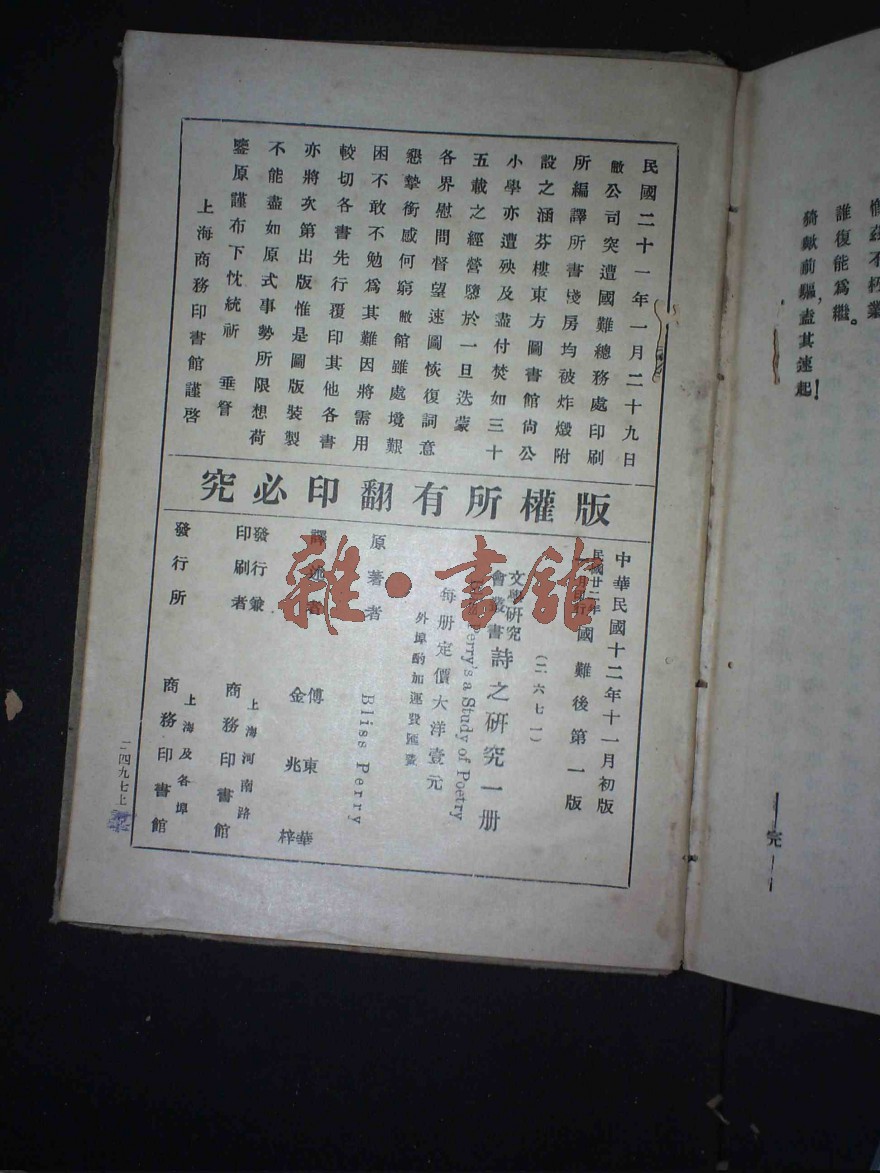 惟茲不朽業
誰復能為繼。
猗歟前驅，盍其速起！
完
民國二十一年一月二十九日
敝公司突遭國難總務處印刷
所編譯所書棧房均被炸燬附
設之涵芬樓東方圖書館尚公
小學亦遭殃及盡付焚如三十
五載之經營隳於一旦迭蒙
各界慰問督望速圖恢復詞意
懇摯銜感何窮敝館雖處境艱
困不敢不勉為其難因將需用
較切各書先行覆印其他各書
亦將次第出版惟是圖版裝製
不能盡如原式事勢所限想荷
鑒原謹布下忱統祈 垂詧
上海商務印書館謹啓
版權所有翻印必究
中華民國十二年十一月初版
民國廿二年
月印行
國難後第一版
(二六七一)
文學研究
會叢書
詩之研究一册
Perry's a Study of Poetry
每册定價大洋壹元
外埠酌加運費匯費
原著者 Bliss Perry
譯述者 傅東華
金兆梓
發行兼
印刷者
上海河南路
商務印書館
發行所
上海及各埠
商務印書館
二四九七上
雜·書館